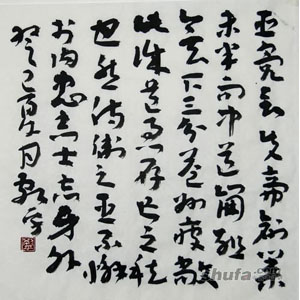 臣亮言先帝創業
未半而中道崩殂
今天下三分益州疲敝
此誠危急存亡之秋
也然侍衛之臣不懈
於內忠志士忘身外
癸巳夏月